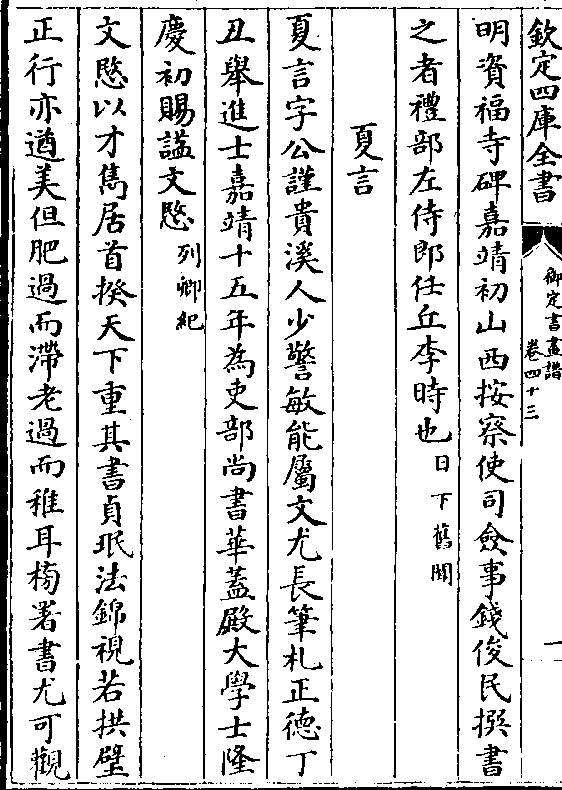 欽定四庫全書
御定書畫譜
卷四十三
一
明資福寺碑嘉靖初山西按察使司僉事錢俊民撰書
之者禮部左侍郎任丘李時也日下舊聞
夏言
夏言字公謹貴溪人少警敏能屬文尤長筆札正德丁
丑舉進士嘉靖十五年為吏部尚書華蓋殿大學士隆
慶初賜諡文愍列卿紀
文愍以才雋居首揆天下重其書貞珉法錦視若拱璧
正行亦遒美但肥過而滯老過而稚耳榜署書尤可觀